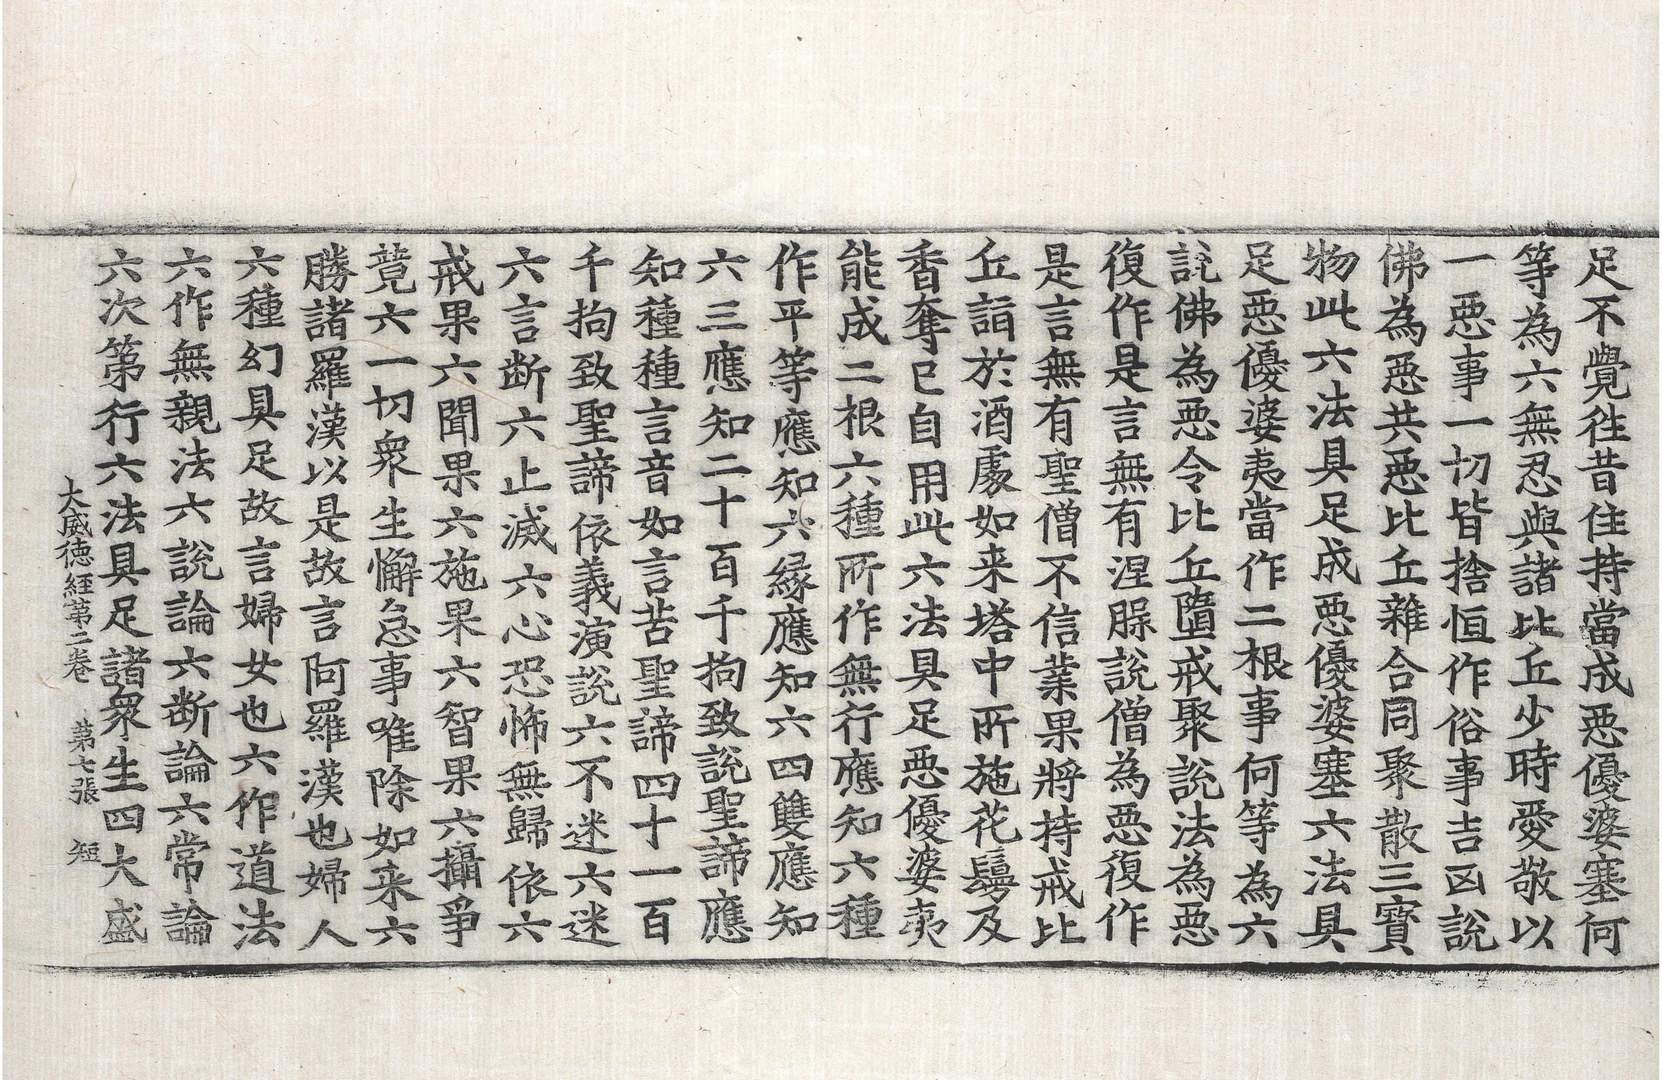 足不覺往昔住持當成惡優婆塞何
等為六無忍與諸比丘少時愛敬以
一惡事一切皆捨恒作俗事吉凶說
佛為惡共惡比丘雜合同聚散三寶
物此六法具足成惡優婆塞六法具
足惡優婆夷當作二根事何等為六
說佛為惡令比丘墮戒聚說法為惡
復作是言無有涅脲說僧為惡復作
是言無有聖僧不信業果將持戒比
丘詣於酒處如来塔中所施花鬘及
香奪已自用此六法具足惡優婆夷
能成二根六種所作無行應知六種
作平等應知六緣應知六四雙應知
六三應知二十百千拘致說聖諦應
知種種言音如言苦聖諦四十一百
千拘致聖諦依義演說六不迷六迷
六言断六止滅六心恐怖無歸依六
戒果六聞果六施果六智果六攝爭
競六一切衆生懈怠事唯除如来六
勝諸羅漢以是故言阿羅漢也婦人
六種幻具足故言婦女也六作道法
六作無親法六說論六断論六常論
六次第行六法具足諸衆生四大盛
大威德經第二卷 第七張 短